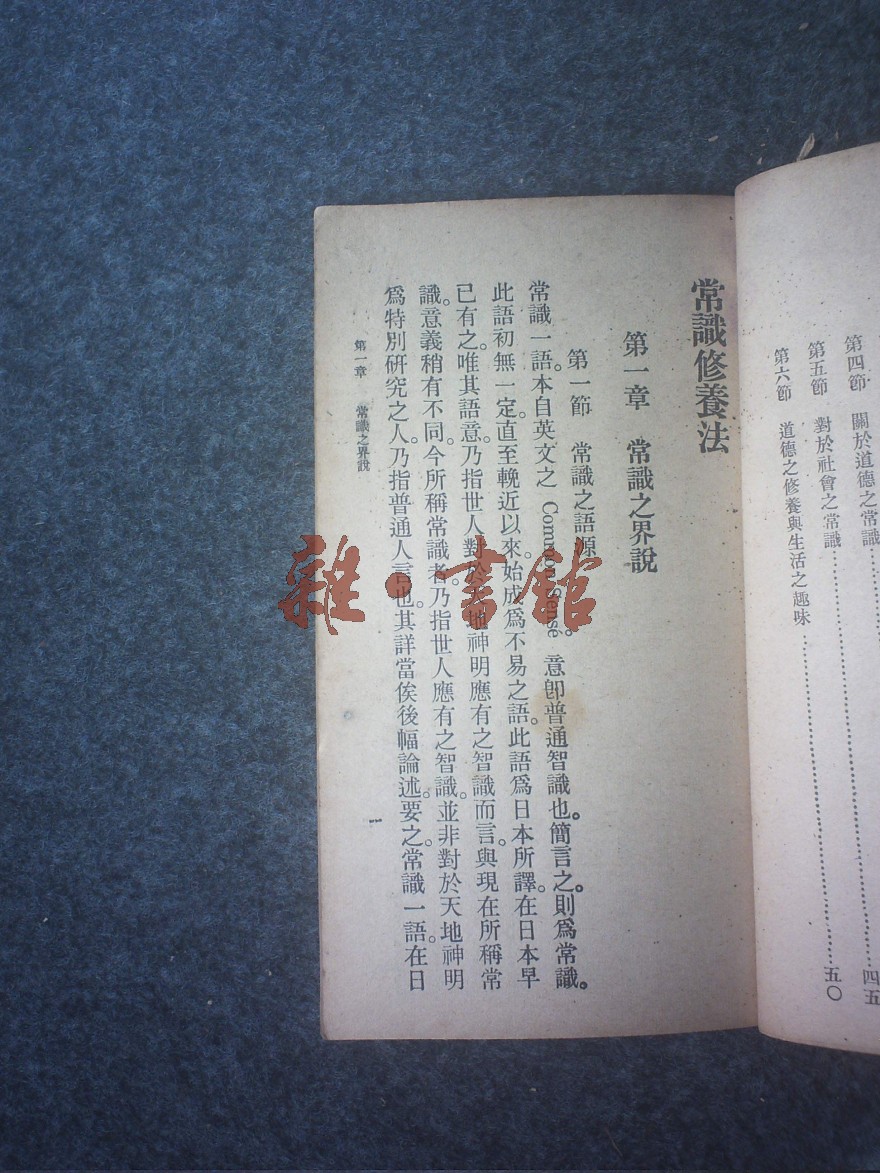 第四節　關於道德之常識
四五
第五節　對於社會之常識
五〇
第六節　道德之修養與生活之趣味
常識修養法
第一章　常識之界說
第一節　常識之語源
常識一語。本自英文之 Common Sense 意卽普通智識也。簡言之。則爲常識。
此語初無一定。直至輓近以來。始成爲不易之語。此語爲日本所譯。在日本早
已有之。唯其語意。乃指世人對於天地神明應有之智識而言。與現在所稱常
識。意義稍有不同。今所稱常識者。乃指世人應有之智識。並非對於天地神明
爲特別硏究之人。乃指普通人言也。其詳當俟後幅論述。要之。常識一語。在日
第一章　常識之界說
一
雜·書館